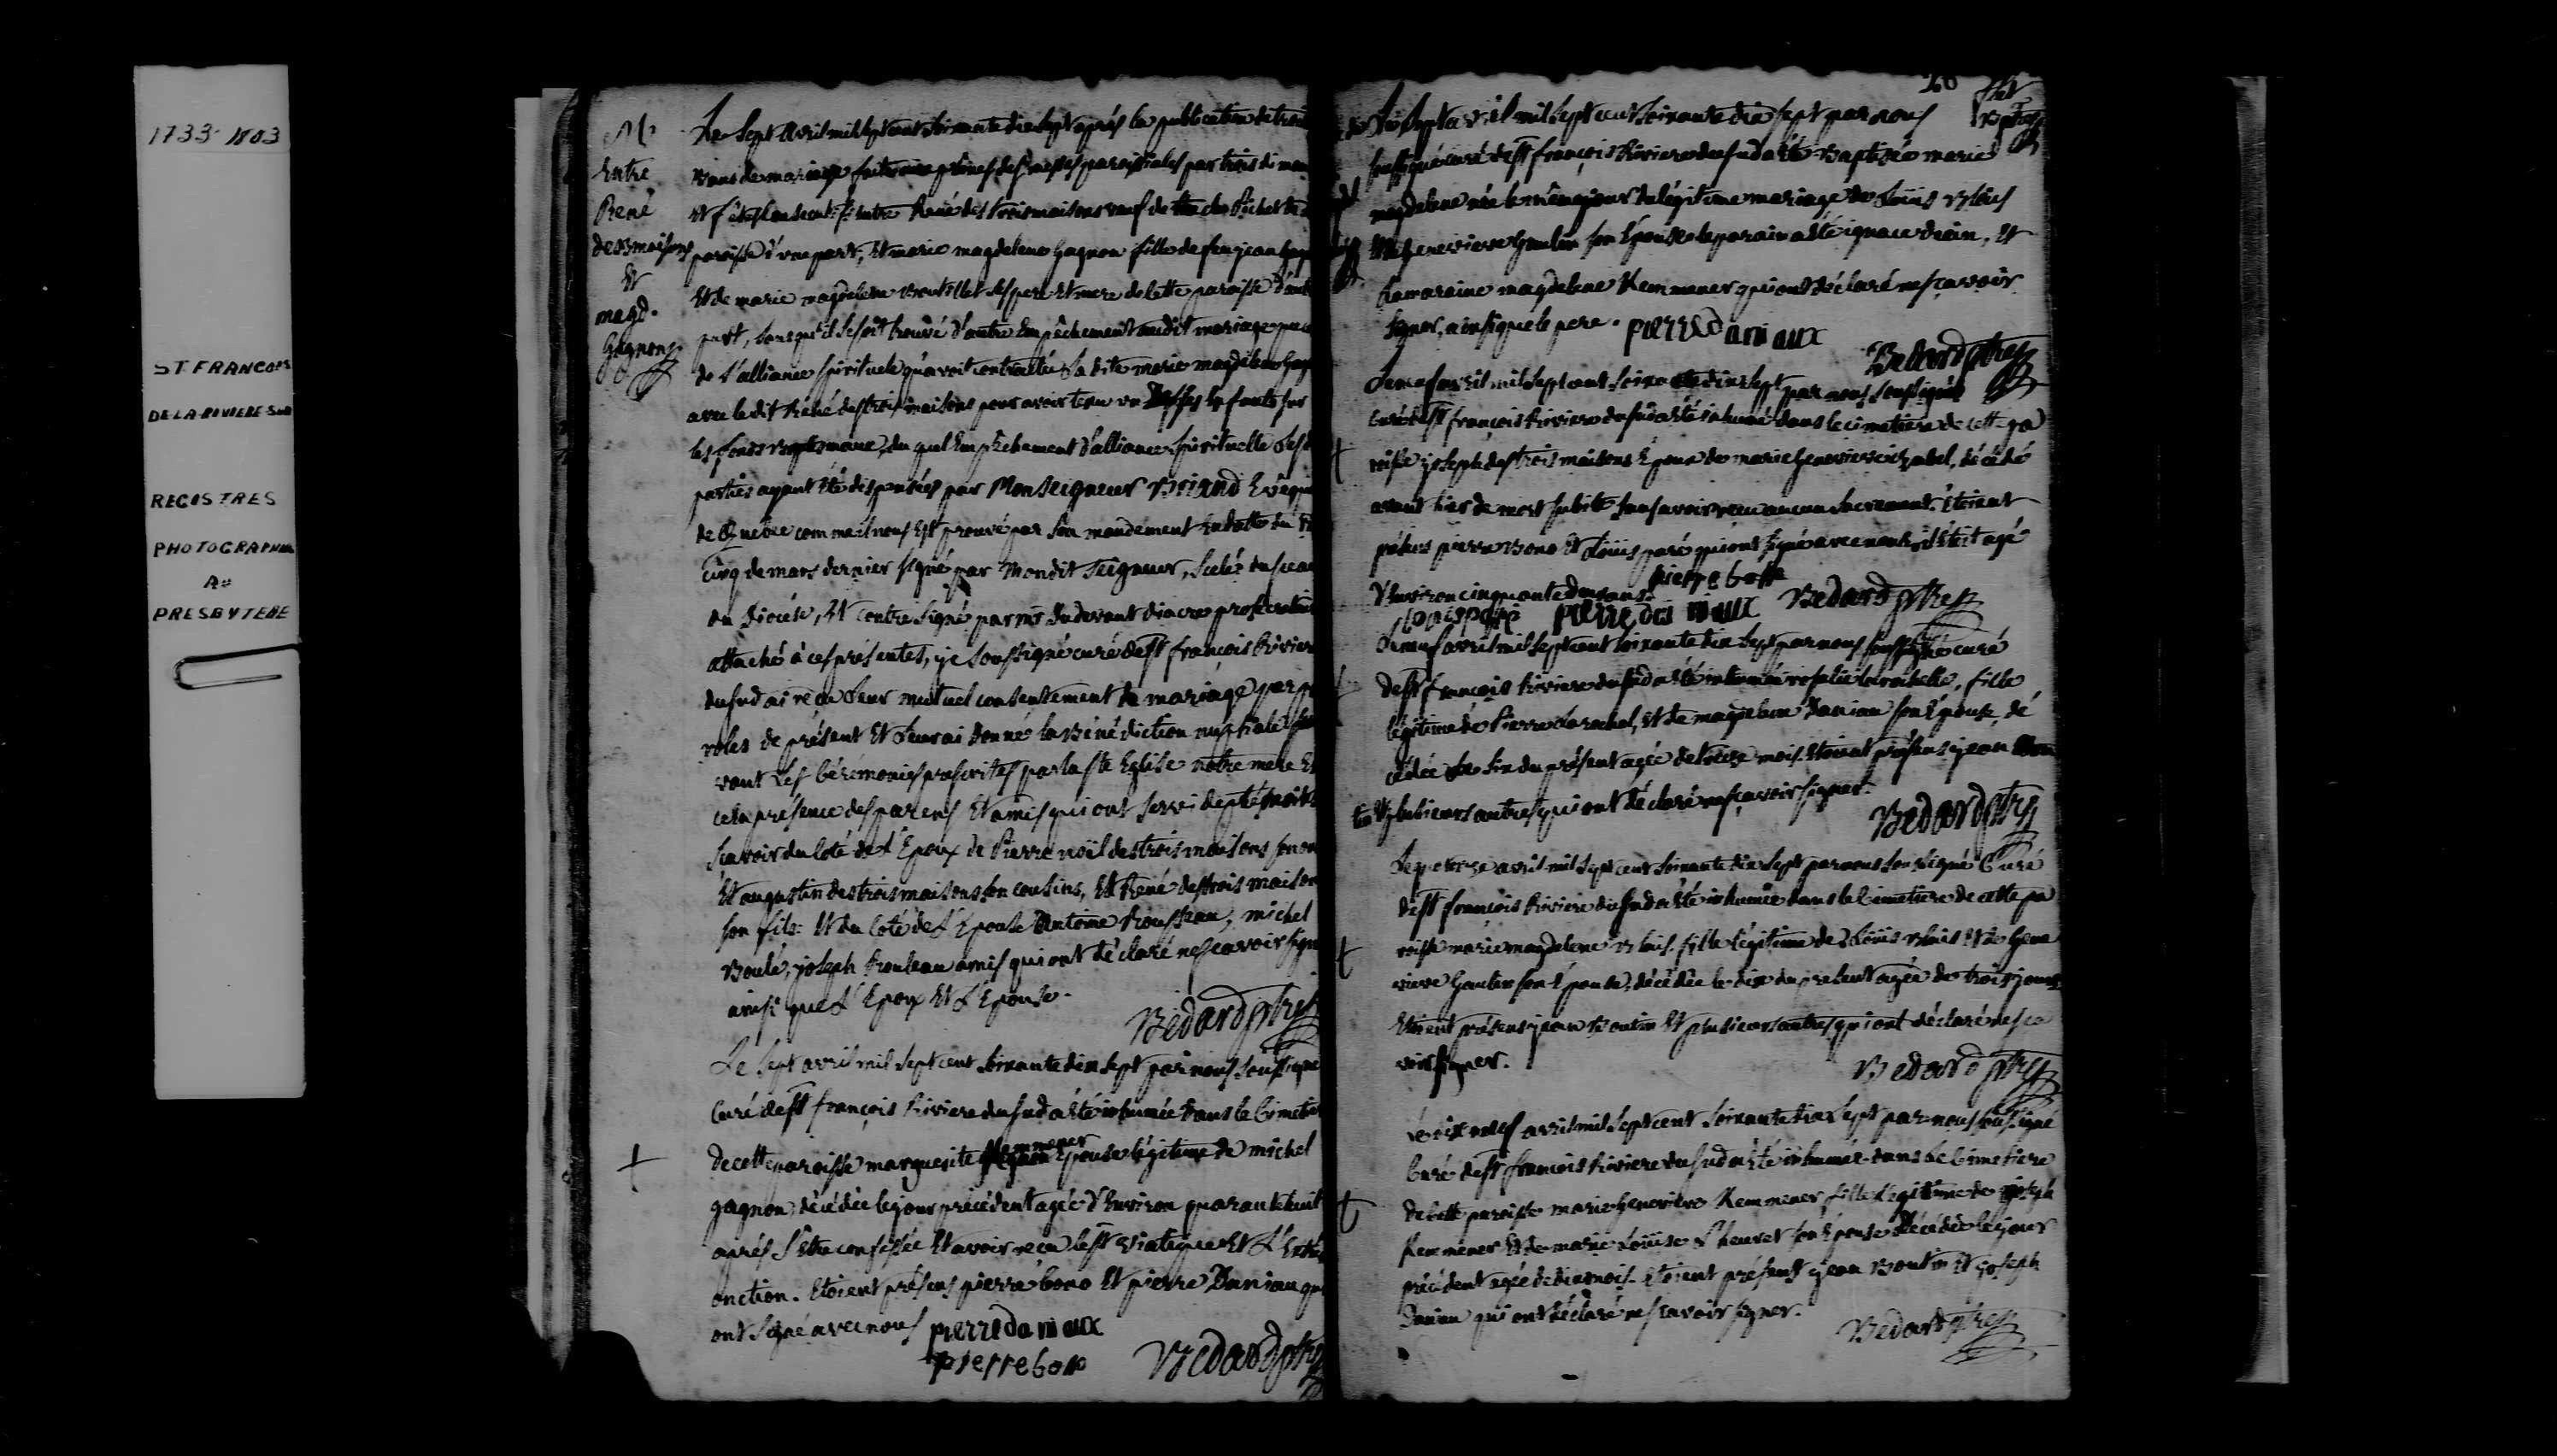 1733-1803
ST. FRANCOIS
DE LA RIVIERE SUD
REGISTRES
PHOTOGRAPHIES
AU
PRESBYTERE
M.
Entre
René
des 3 maisons
Et
magd.
Gagnon
Le Sept avril mil sept cent soixante dix sept après la publication de trois
Bans de mariage faite aux prônes des messes paroissiales par trois diman
et fêtes Consecutifs Entre René des trois maisons veuf de
paroisse d'une part, Et marie magdelene Gagnon fille de feu jean Gagn
Et de marie magdelene Boutillet ses pere Et mere de Cette paroisse d'autr
part, sans qu'il se soit trouvé d'autre Empêchement audit mariage que
de L'alliance spirituele qu'avoit contractée La dite marie magdelene Gagn
avec le dit René des trois maisons pour avoir tenu un de ses Enfants sur
les fonds Baptismaux, du quel Empêchement d'alliance spirituelle Les
parties ayant été dispensées par Monseigneur Briand Evêque
de Quebec comme il nous Est prouvé par son mandement En datte du
cinq de mars dernier signé par Mondit Seigneur, Scelé du sceau
du Diocése, Et Contre Signé par
attaché à ces présentes, je soussigné curé de St françois Riviere
du sud ai reçu Leur mutuel consentement de mariage par pa
roles de présent Et Leur ai donné la Bénédiction nuptiale sui
vant Les Cérémonies prescrites par la Ste Eglise notre mere Et
ce la présence des parens Et amis qui ont servi de témoins
Sçavoir du Coté de L'Epoux de Pierre noël des trois maisons son on
Et augustin des trois maisons son cousins, Et René des trois maisons
son fils: Et du Coté de L'Epouse Antoine Rousseau, michel
Boulé, joseph Rouleau amis qui ont déclaré ne sçavoir sign
ainsi que L'Epoux Et L'Epouse.
Bédard ptre
Le Sept avril mil sept cent soixante dix sept par nous soussigné
Curé de St françois Riviere du sud a été inhumée dans le Cimetier
de cette paroisse marguerite Kemmener Epouse légitime de michel
gagnon, décédée le jour précédent agée d'Environ quarante huit
après s'être confessée Et avoir reçu le St Viatique Et L'Extr
onction. Etoient présens pierre bono Et pierre Daniau qui
ont signé avec nous pierre daniaux
pierre bono Bedard ptre
Le Sept avril mil sept cent soixante dix sept par nous
soussigné curé de St françois Riviere du sud a été Baptisée marie
magdelene née le même jour du légitime mariage de Loüis Blais
Et de genevieve Gaulin son Epouse le parain a été ignace Dion, Et
La maraine magdelene Kemmener qui ont déclaré ne sçavoir
signer, ainsi que le pere. pierre daniaux
Bedard ptre
Le neuf avril mil sept cent soixante dix sept par nous soussigné
curé de St françois Riviere du sud a été inhumé dans le cimetiere de cette pa
roisse joseph des trois maisons Epoux de marie genevieve izabel, décédé
avant hier de mort subite sans avoir reçu aucun sacrement. Etoient
présens pierre Bono Et Loüis paré qui ont signé avec nous, il étoit agé
d'Environ cinquante deux ans. pierre bono
Louis paré pierre daniaux Bedard ptre
Le neuf avril mil sept cent soixante dix sept par nous soussigné curé
de St françois Riviere du sud a été inhumée rosalie Larochelle, fille
légitime de Pierre Larochel, Et de magdelene Daniau son Epouse, dé
cédée le six du présent agée de treize mois. Etoient présens jean Bou
tin Et plusieurs autres qui ont déclaré ne sçavoir signer.
Bedard ptre
Le quatorze avril mil sept cent soixante dix sept par nous soussigné Curé
de St françois Riviere du sud a été inhumée dans le Cimetiere de cette pa
roisse marie magdelene Blais fille légitime de Loüis Blais Et de Gene
vieve Gaulin son Epouse, décédée le dix du present agée de trois jours
Etoient présens jean Boutin Et plusieurs autres qui ont déclaré ne sça
voir signer.
Bedard ptre
Le dix neuf avril mil sept cent soixante dix sept par nous soussigné
Curé de St françois Riviere du sud a été inhumée dans le Cimetiere
de Cette paroisse marie Genevieve Kemmener fille légitime de joseph
Kemmener Et de marie Loüise L'heuret son Epouse décédée le jour
précédent agée de dix mois. Etoient présens jean Boutin Et joseph
Daniau qui ont déclaré ne sçavoir signer.
Bedard ptre